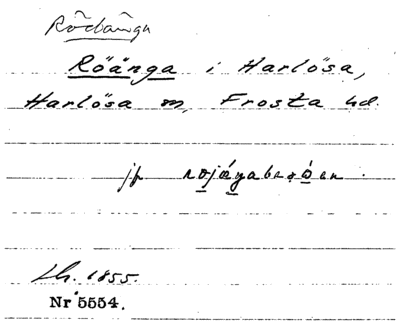 Rödänga
Röänga i Harlösa,
Harlösa m, Frosta hd.
jf
Lh. 1855.
Nr 5554.